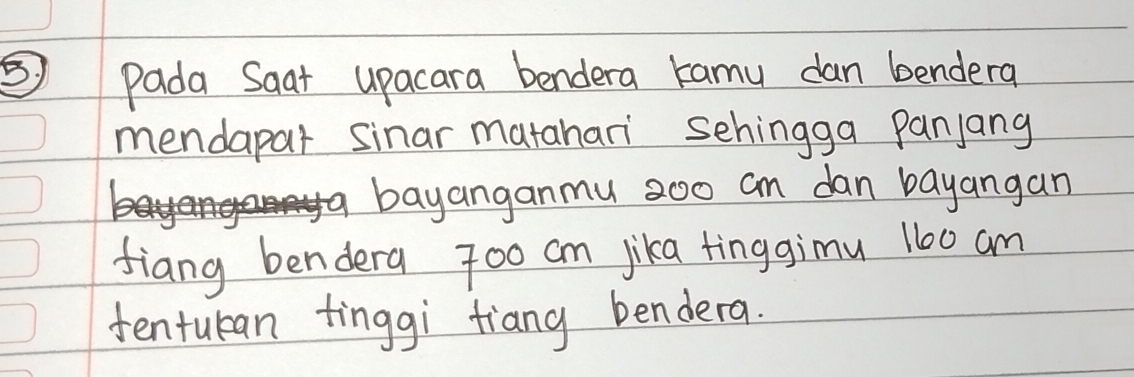 3. Pada Saat upacara bendera kamu dan bendera
mendapat sinar matahari sehingga Panjang
bayangannya bayanganmu 200 cm dan bayangan
tiang bendera 700 cm jika tinggimu 160 cm
tentukan tinggi tiang bendera.